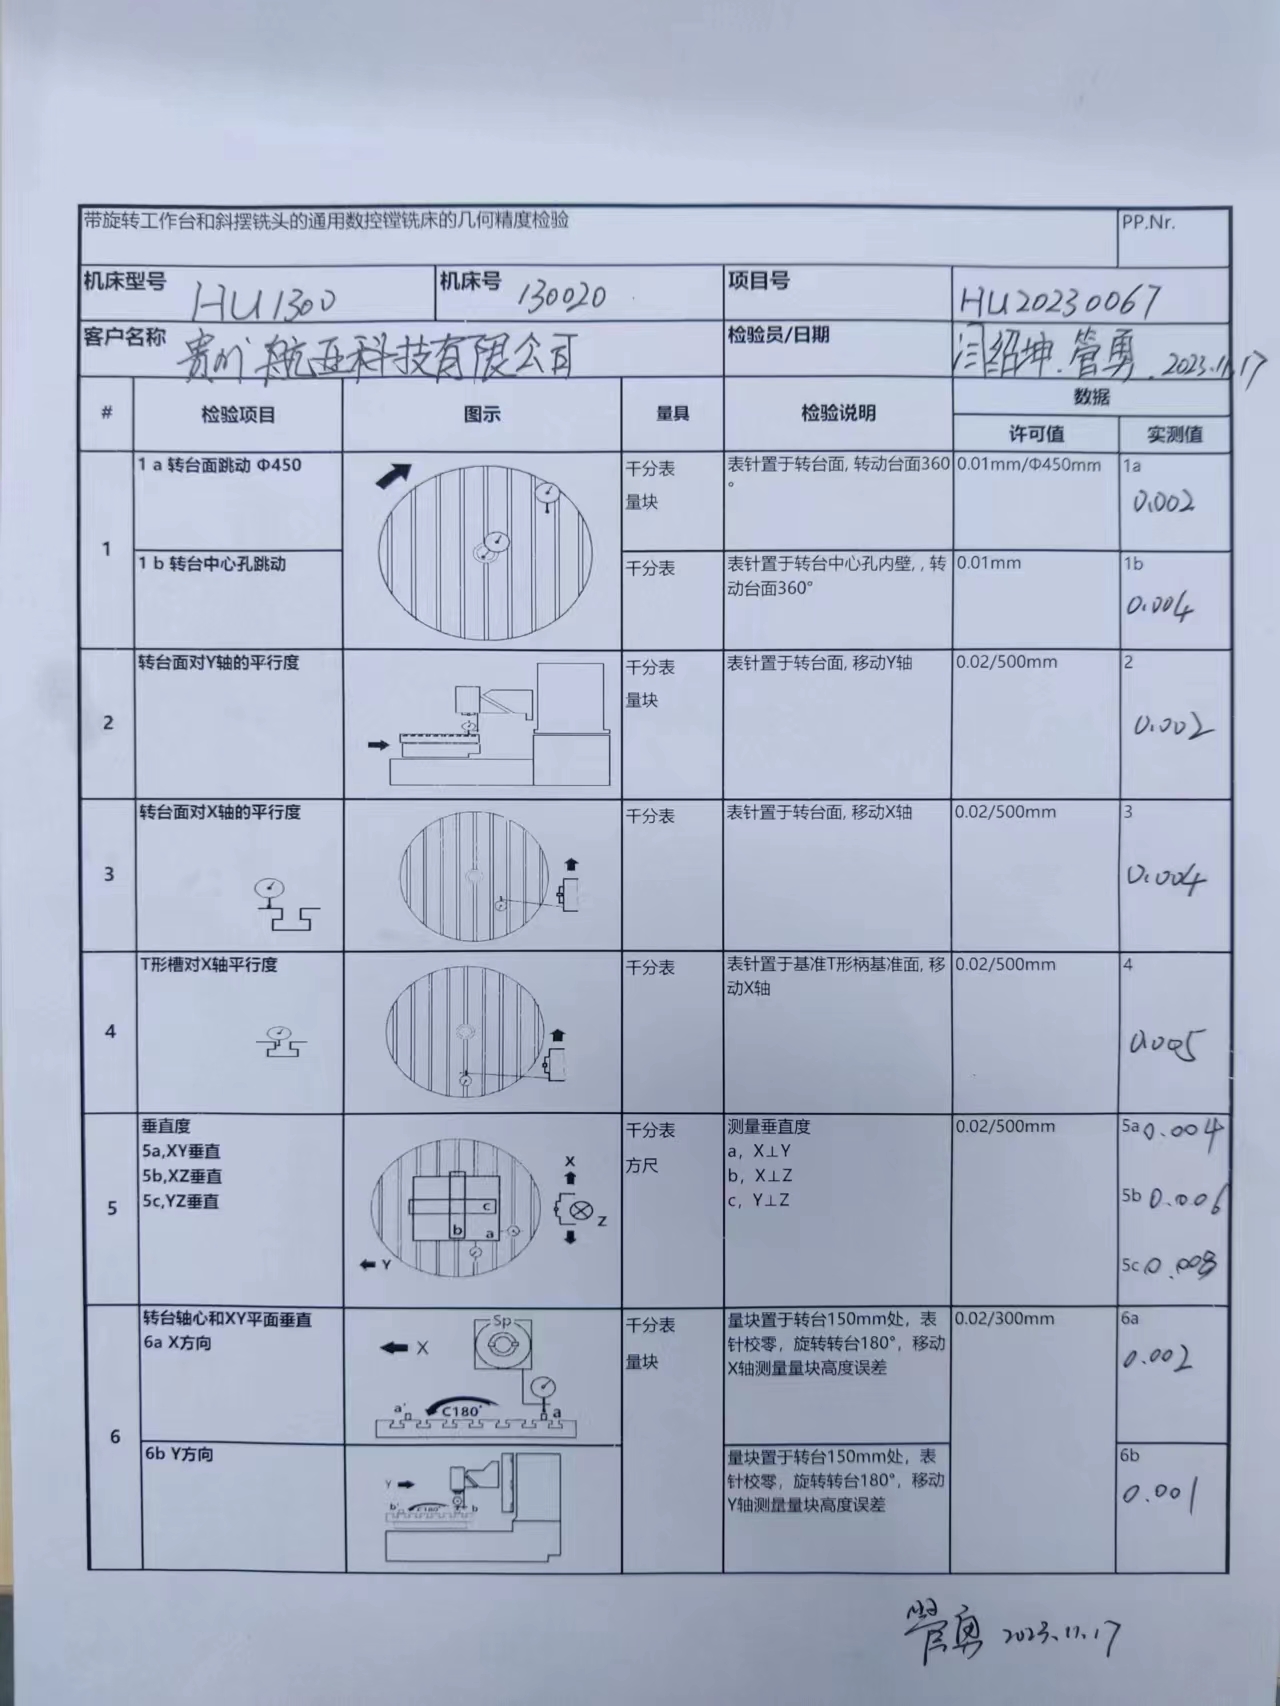 带旋转工作台和斜摆铣头的通用数控镗铣床的几何精度检验
PP.Nr.
机床型号 HU1300
机床号 130020
项目号 HU20230067
客户名称 贵州航亚科技有限公司
检验员/日期 闫绍坤.管勇.2023.11.17
#
检验项目
图示
量具
检验说明
数据
许可值
实测值
1
1 a 转台面跳动 Φ450
千分表
量块
表针置于转台面, 转动台面360
°
0.01mm/Φ450mm
1a
0.002
1 b 转台中心孔跳动
千分表
表针置于转台中心孔内壁, , 转
动台面360°
0.01mm
1b
0.004
2
转台面对Y轴的平行度
千分表
量块
表针置于转台面, 移动Y轴
0.02/500mm
2
0.002
3
转台面对X轴的平行度
千分表
表针置于转台面, 移动X轴
0.02/500mm
3
0.004
4
T形槽对X轴平行度
千分表
表针置于基准T形柄基准面, 移
动X轴
0.02/500mm
4
0.005
5
垂直度
5a,XY垂直
5b,XZ垂直
5c,YZ垂直
X
Z
Y
a
b
c
千分表
方尺
测量垂直度
a, X⊥Y
b, X⊥Z
c, Y⊥Z
0.02/500mm
5a 0.004
5b 0.006
5c 0.008
6
转台轴心和XY平面垂直
6a X方向
Sp
X
a'
C180°
a
千分表
量块
量块置于转台150mm处, 表
针校零, 旋转转台180°, 移动
X轴测量量块高度误差
0.02/300mm
6a
0.002
6b Y方向
Y
b'
C180°
b
量块置于转台150mm处, 表
针校零, 旋转转台180°, 移动
Y轴测量量块高度误差
6b
0.001
管勇 2023.11.17